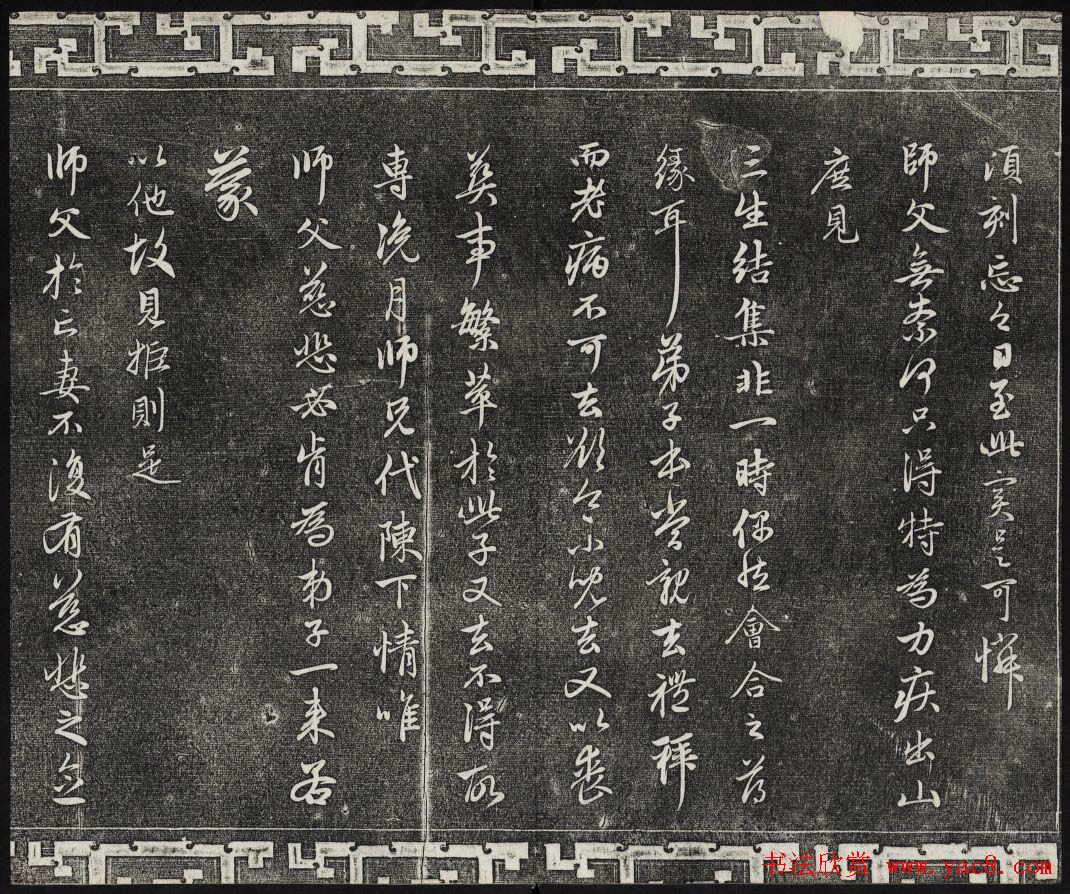 須刻忘今日至此實是可憐
師父無奈何只得特為力疾出山
庶見
三生結集非一時偶然會合之薄
緣耳弟子本當親去禮拜
而老病不可去欲令小兒去又以喪
葬事繁萃於此子又去不得故
專浼月師兄代陳下情唯
师父慈悲必肯為弟子一来若
蒙
以他故見拒則是
师父於亡妻不復有慈悲之念
书法欣赏 www.yac8.com